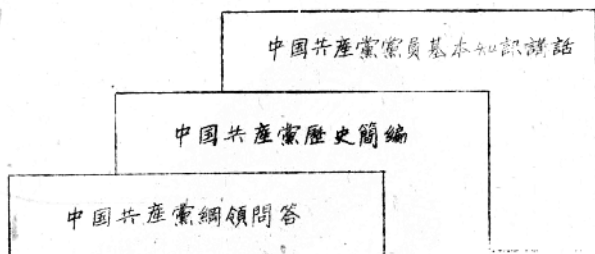 中国共產黨黨員基本知識講話
中国共產黨歷史簡編
中国共產黨綱領問答